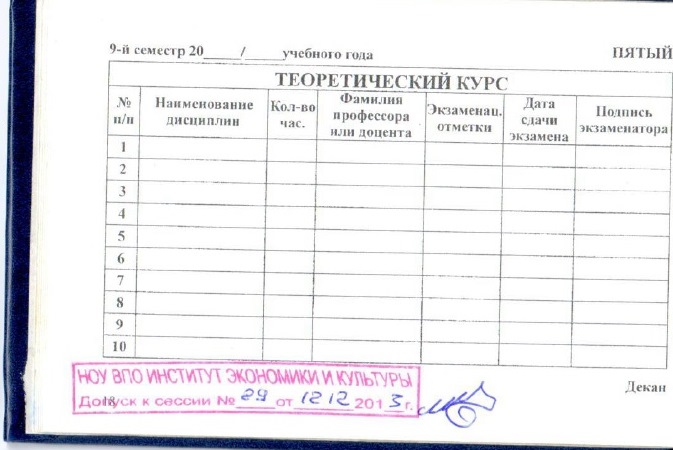 9-й семестр 20_____/_____учебного года ПЯТЫЙ
ТЕОРЕТИЧЕСКИЙ КУРС
№ п/п Наименование дисциплин Кол-во час. Фамилия профессора или доцента Экзаменац. отметки Дата сдачи экзамена Подпись экзаменатора
1
2
3
4
5
6
7
8
9
10
НОУ ВПО ИНСТИТУТ ЭКОНОМИКИ И КУЛЬТУРЫ
Декан
Допуск к сессии № 29 от 12 12 2013 г.
18